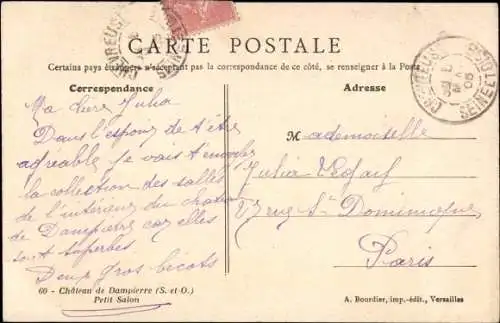 CARTE POSTALE
Certains pays étrangers n'acceptant pas la correspondance de ce côté, se renseigner à la Poste
Correspondance
Adresse
CHEVREUSE
SEINE
CHEVREUSE
05
SEINE
Ma Julia
Dans l'espoir de t'être
agréable je vais t'envoyer
la collection des salles
de l'intérieur du chateau
de Dampierre car elles
sont superbes
Deux gros bécots
Mademoiselle
rue St Dominique
Paris
60 - Château de Dampierre (S.-et-O.)
Petit Salon
A. Bourdier, imp.-édit., Versailles